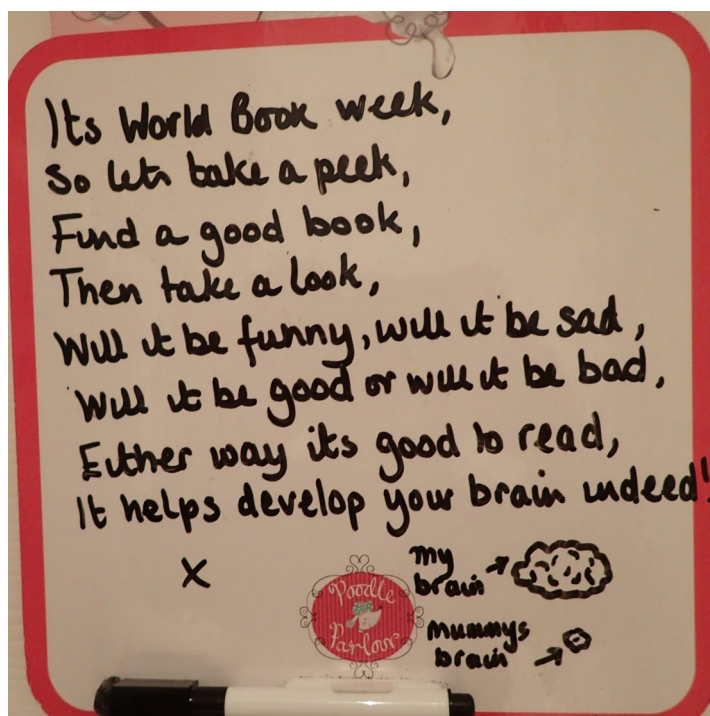 Its World Book week,
So lets take a peek,
Find a good book,
Then take a look,
Will it be funny, will it be sad,
Will it be good or will it be bad,
Either way its good to read,
It helps develop your brain indeed!
x
my
brain
Poodle
Parlour
mummys
brain